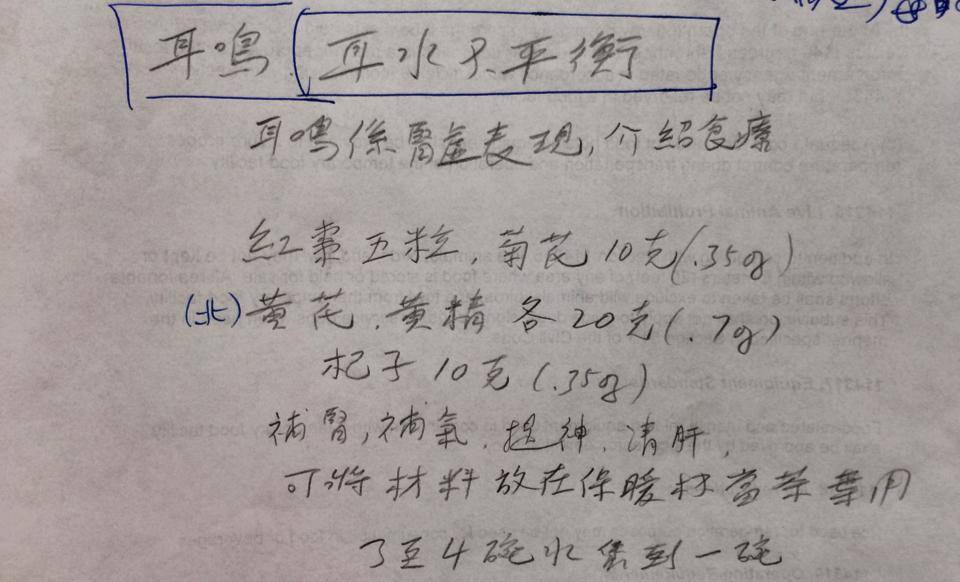 耳鳴 耳水不平衡
耳鳴係腎虛表現,介紹食療
紅棗五粒 菊芪 10克(.35g)
(北)黃芪、黃精 各20克(.7g)
杞子10克(.35g)
補腎,補氣、提神、清肝,
可將材料放在保暖杯當茶葉用
3至4碗水煲到一碗